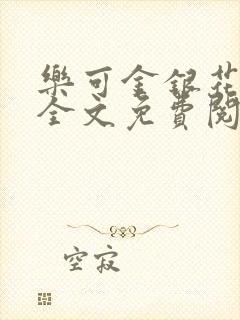 樂可金銀花
全文免費閱
空寂